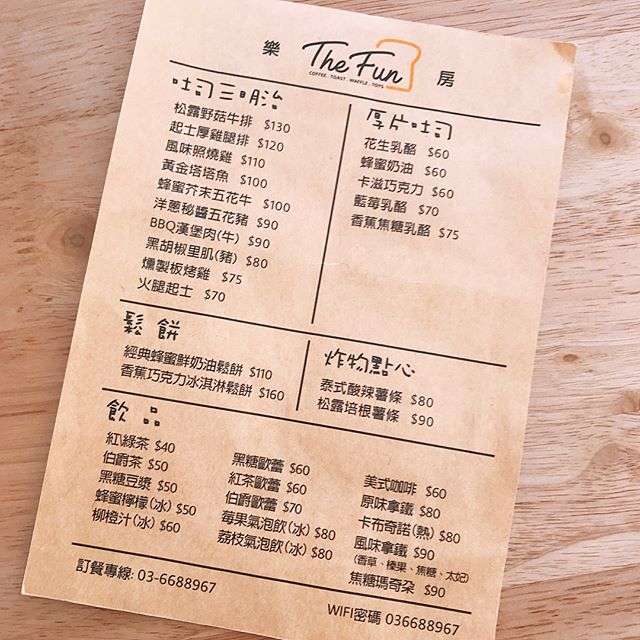 樂 The Fun 房
COFFEE . TOAST . WAFFLE . TOYS
吐司三明治
松露野菇牛排 $130
起士厚雞腿排 $120
風味照燒雞 $110
黃金塔塔魚 $100
蜂蜜芥末五花牛 $100
洋蔥秘醬五花豬 $90
BBQ漢堡肉(牛) $90
黑胡椒里肌(豬) $80
燻製板烤雞 $75
火腿起士 $70
厚片吐司
花生乳酪 $60
蜂蜜奶油 $60
卡滋巧克力 $60
藍莓乳酪 $70
香蕉焦糖乳酪 $75
鬆餅
經典蜂蜜鮮奶油鬆餅 $110
香蕉巧克力冰淇淋鬆餅 $160
炸物點心
泰式酸辣薯條 $80
松露培根薯條 $90
飲品
紅\綠茶 $40
伯爵茶 $50
黑糖豆漿 $50
蜂蜜檸檬(冰) $50
柳橙汁(冰) $60
黑糖歐蕾 $60
紅茶歐蕾 $60
伯爵歐蕾 $70
莓果氣泡飲(冰) $80
荔枝氣泡飲(冰) $80
美式咖啡 $60
原味拿鐵 $80
卡布奇諾(熱) $80
風味拿鐵 $90
(香草、榛果、焦糖、太妃)
焦糖瑪奇朵 $90
訂餐專線: 03-6688967
WIFI密碼 036688967